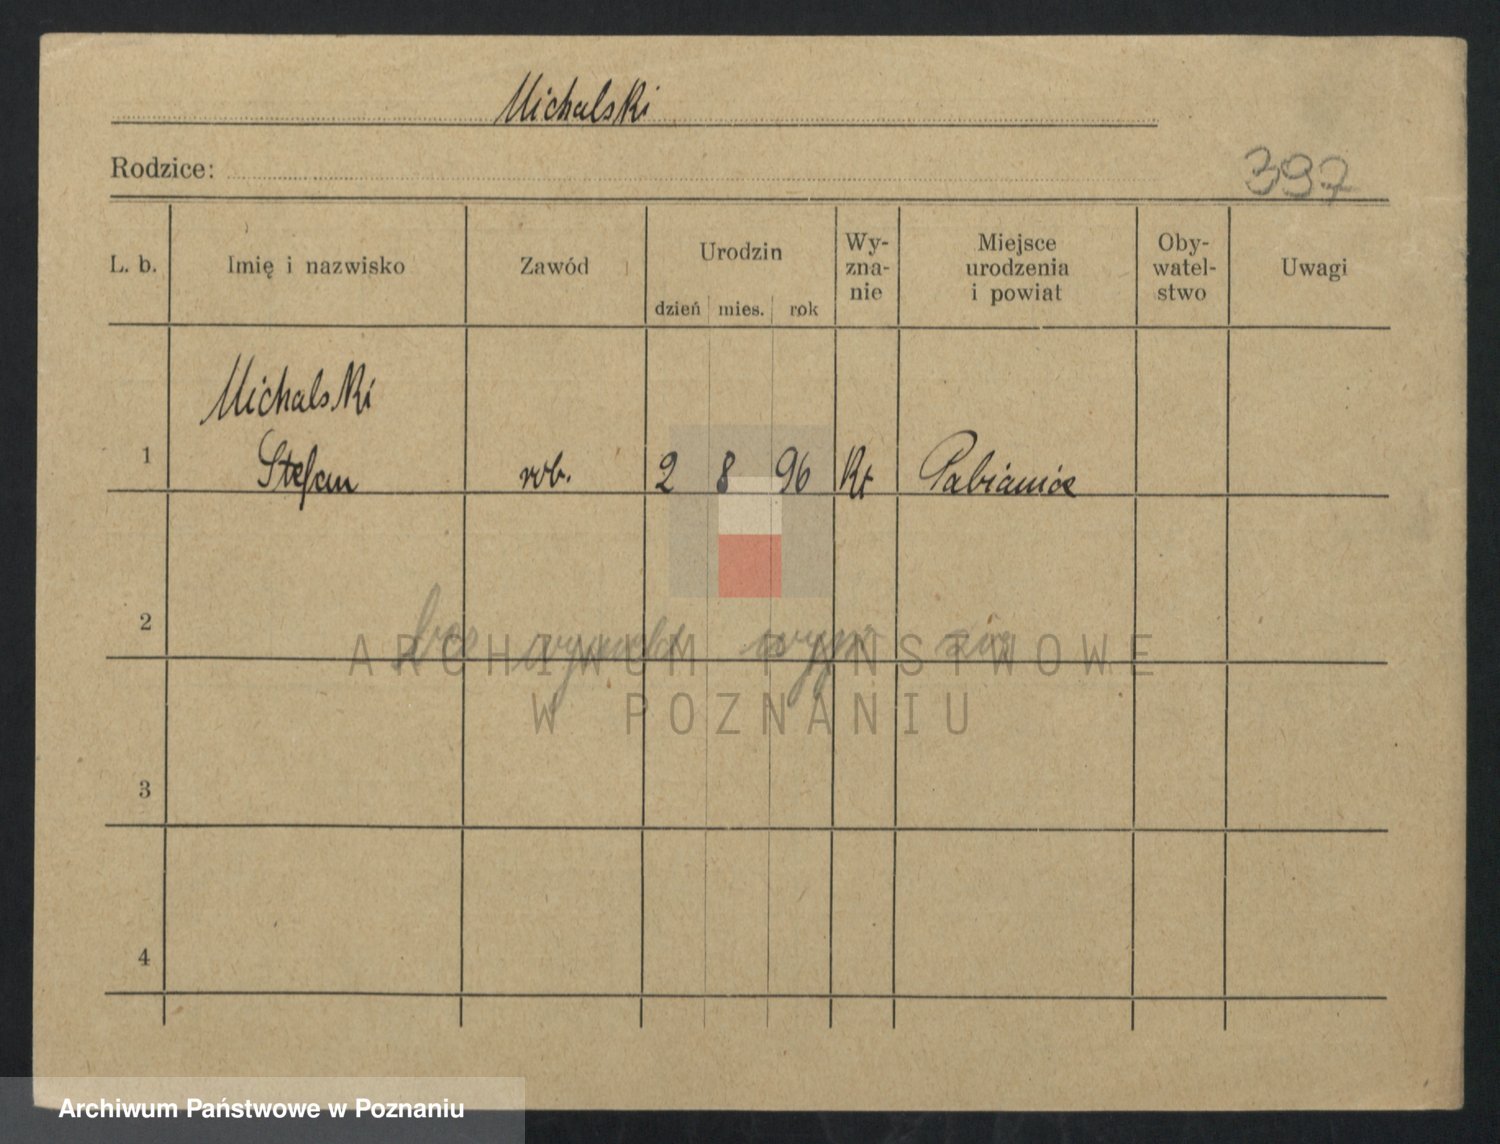 Michalski
Rodzice:
397
L. b.
Imię i nazwisko
Zawód
Urodzin
dzień
mies.
rok
Wy-
zna-
nie
Miejsce
urodzenia
i powiat
Oby-
watel-
stwo
Uwagi
Michalski
1 Stefan rob. 2 8 96 Rk Pabianice
2
ARCHIWUM PAŃSTWOWE
W POZNANIU
3
4
Archiwum Państwowe w Poznaniu